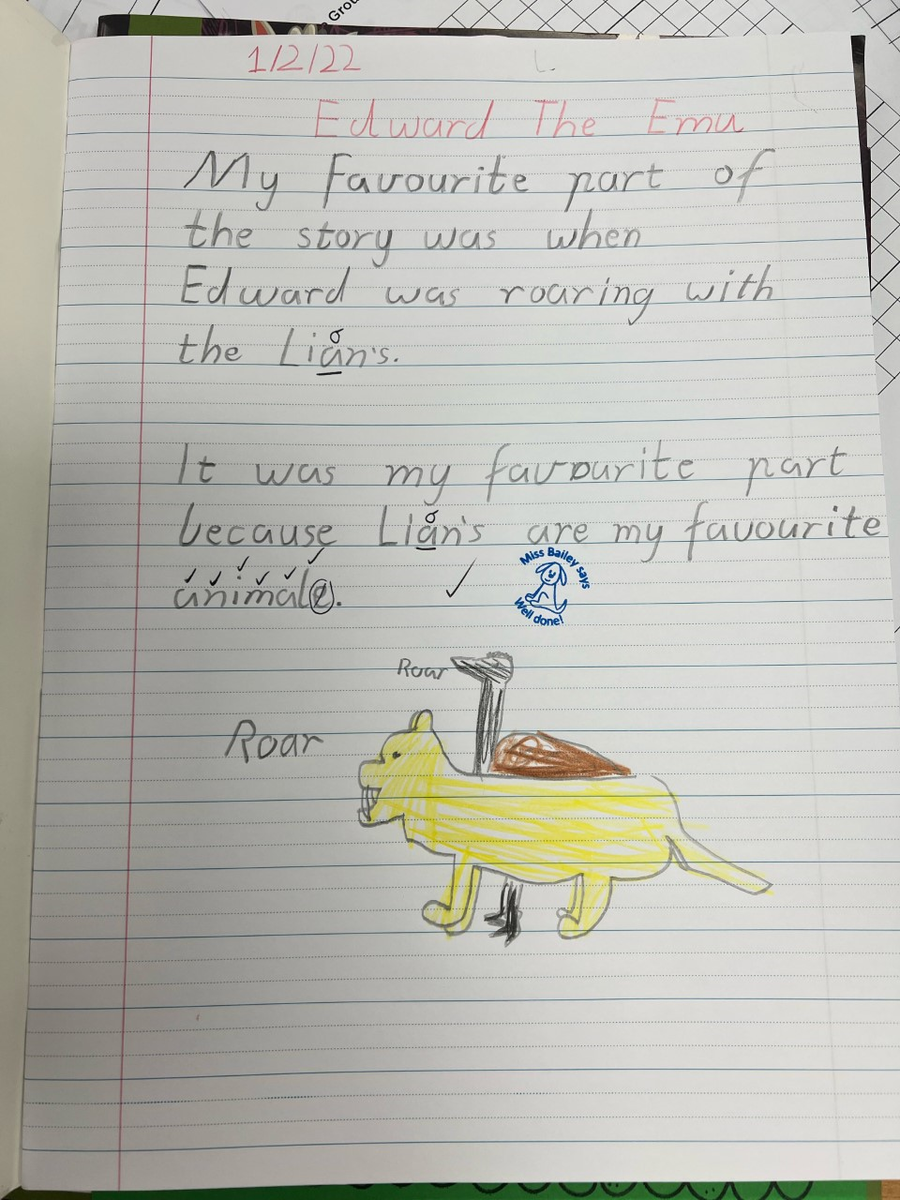 1/2/22
Edward The Emu
My Favourite part of
the story was when
Edward was roaring with
the Lian's.
o
It was my favourite part
because Lian's are my favourite
o
animale.
Miss Bailey says
Well done!
Roar
Roar